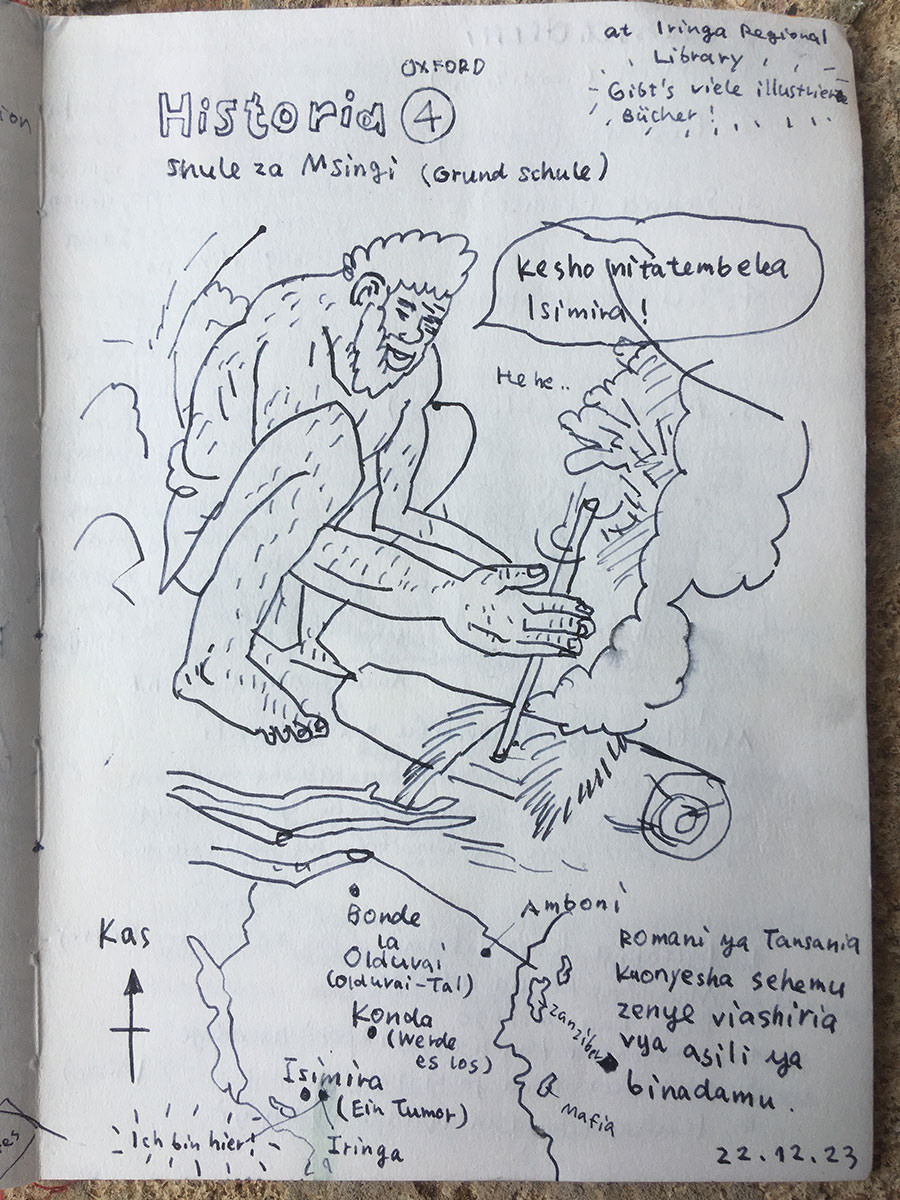 at Iringa Regional
Library
Gibt's viele illustrierte
Bücher!
OXFORD
Historia 4
Shule za Msingi (Grundschule)
Kesho nitatembelea
Isimira!
Hehe..
Kas
Bonde
la
Olduvai
(Olduvai-Tal)
Amboni
Konda
(Werde
es los)
Isimira
(Ein Tumor)
Iringa
Ich bin hier!
Zanzibar
Mafia
Romani ya Tansania
kuonyesha sehemu
zenye viashiria
vya asili ya
binadamu.
22.12.23